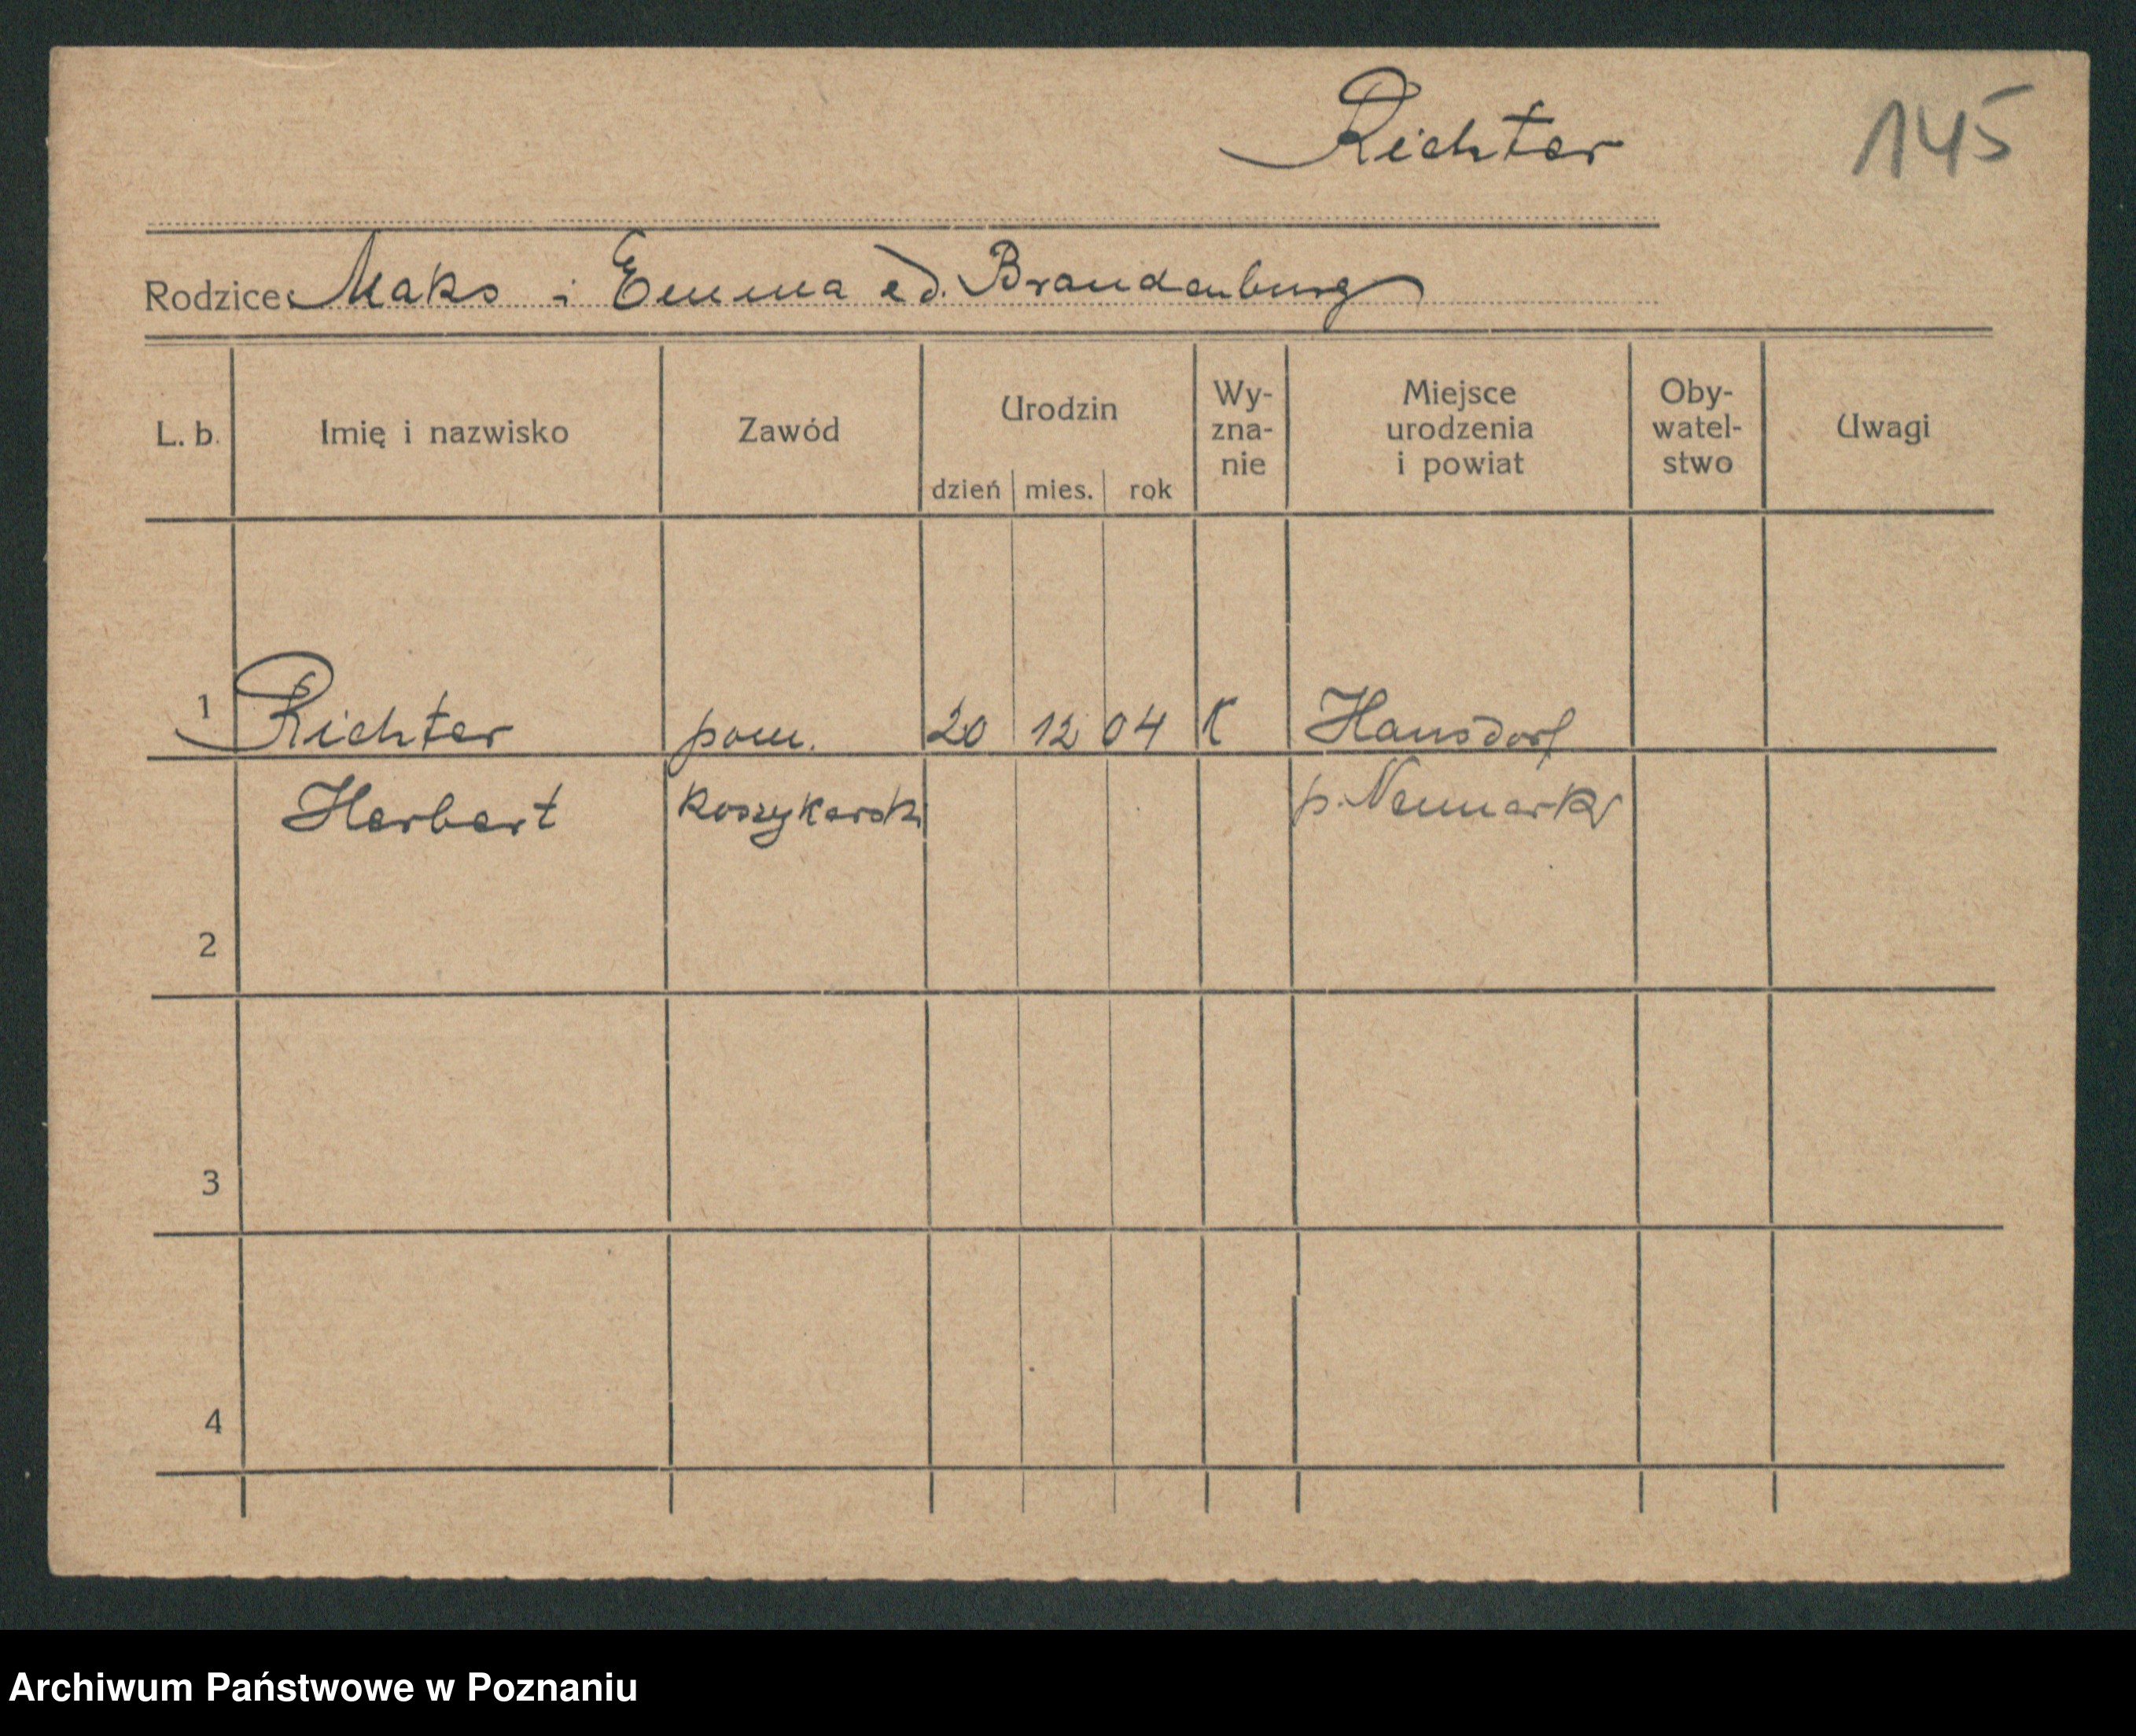 Richter
145
Rodzice: Maks i Emma e d. Brandenburg
L. b.
Imię i nazwisko
Zawód
Urodzin
dzień mies. rok
Wy-
zna-
nie
Miejsce
urodzenia
i powiat
Oby-
watel-
stwo
Uwagi
1 Richter pom. 20 12 04 K Hansdorf
Herbert koszykarski p. Neumark
2
3
4
Archiwum Państwowe w Poznaniu